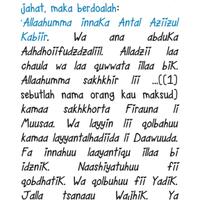 jahat, maka berdoalah:
'Allaahumma innaKa Antal Aziizul
Kabiir. Wa ana abduKa
Adhdhoiifudzdzaliil. Alladzii laa
chaula wa laa quwwata illaa biK.
Allaahumma sakhkhir lii ...((1)
sebutlah nama orang kau maksud)
kamaa sakhkhorta Firauna li
Muusaa. Wa layyin lii qolbahuu
kamaa layyantalhadiida li Daawuuda.
Fa innahuu laayantiqu illaa bi
idzniK. Naashiyatuhuu fii
qobdhatiK. Wa qolbuhuu fii YadiK.
Jalla tsanaau WajhiK. Ya